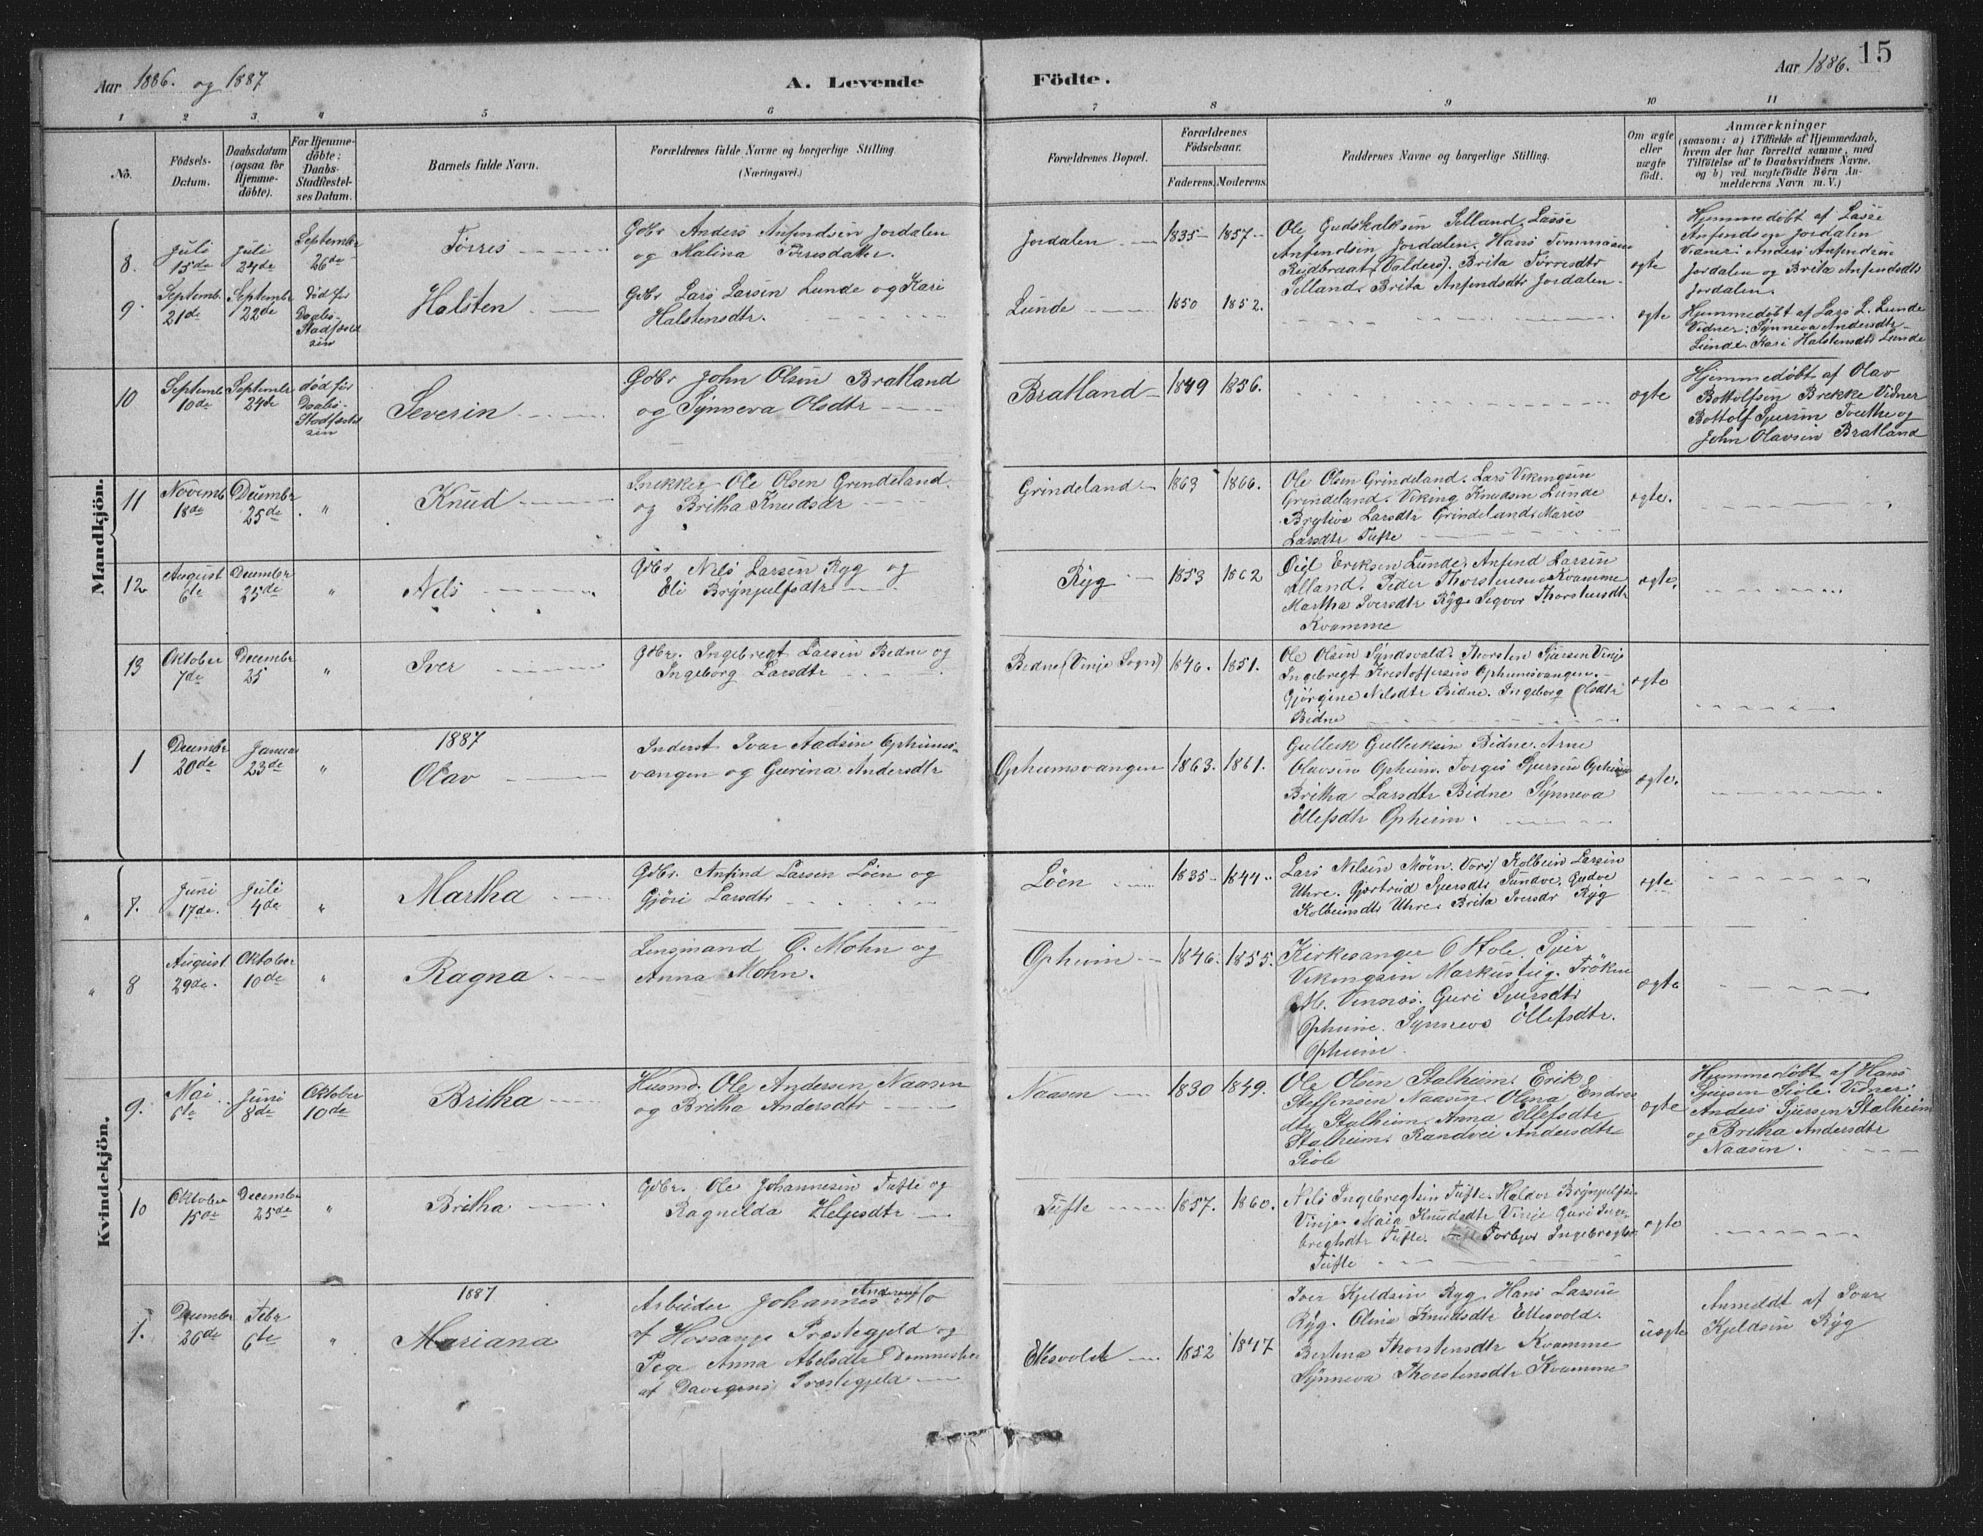 Aar 1886. og 1887
A. Levende
Födte.
Aar 1886.
15
1 2 3 4 5 6 7 8 9 10 11
No.
Födsels-Datum.
Daabsdatum (ogsaa for Hjemmedöbte).
For Hjemmedöbte: Daabs-Stadfæstelses Datum.
Barnets fulde Navn.
Forældrenes fulde Navne og borgerlige Stilling
(Næringsvei.)
Forældrenes Bopæl.
Forældrenes Födselsaar.
Faderens. Moderens.
Faddernes Navne og borgerlige Stilling.
Om ægte eller uægte födt.
Anmærkninger
(saasom: a) i Tilfælde af Hjemmedaab,
hvem der har forrettet samme, med
Tilföielse af to Daabsvidners Navne.
og b) ved uægtefödte Börn An-
melderens Navn m. V.)
Mandkjön.
8. Juli 15de Juli 24de September 26de
Tørris
Gdbr Anders Anfindsen Jordalen
og Malina
Jordalen
1835 1857
Ole Gudskalksen Selland, Lasse
Anfindsen Jordalen. Hans Tommasen
(Valders). Brita Tørresdtr
Selland. Brita Anfindsdtr Jordalen.
ægte
Hjemmedøbt af Lasse
Anfindsen Jordalen
Anders Anfindsen
Jordalen og Brita Anfindsdtr
Jordalen.
9. Septemb. 21de Septembr 22de død før Daabs-Stadfæstelsen
Halsten
Gdbr Lars Larsen Lunde og Kari
Halstensdtr.
Lunde
1850 1852.
ægte
Hjemmedøbt af Lars L. Lunde
Vidner: Synneva Andersdtr
Lunde. Kari Halstensdtr Lunde
10 Septemb 10de Septembr 24de død før Daabs-Stadfæstelsen
Severin
Gdbr John Olsen Bratland
og Synneva Olsdtr
Bratland
1849 1856.
ægte
Hjemmedøbt af Olav
Bottolfsen Brekke Vidner
Bottolf Sjursen Tveithe og
John Olavsen Bratland
11 Novemb 18de Decembr 25de "
Knud
Snekker Ole Olsen Grindeland.
og Britha Knudsdr
Grindeland
1863 1866.
Ole Olsen Grindeland. Lars Vikingsen
Grindeland. Viking Knudsen Lunde
Brytiva Larsdtr Grindeland. Maria
Larsdtr Tufte
ægte.
12 August 6te Decembr 25de "
Nils
Gdbr Nils Larsen Ryg og
Eli Brynjulfsdtr
Ryg
1853 1862
Eriksen Lunde. Anfind Larsen
Peder Thorstensen Kvamme
Martha Iversdtr Ryg. Thorstensdtr
Kvamme
ægte.
13 Oktober 7de Decembr 25 "
Iver
Gdbr. Ingebregt Larsen Bidne og
Ingeborg Larsdtr
Bidne (Vinje Sogn)
1846. 1851.
Ole Olsen Thorsten Sjursen Vinje
Ingebregt Kristoffersen Ophumsvangen.
Gjörgine Nilsdtr Bidne. Ingeborg Olsdtr
Bidne
ægte
1887
1 Decembr 20de Januar 23de "
Olav
Inderst Ivar Aadsen Ophums-
vangen og Gurina Andersdtr
Ophumsvangen
1863. 1861.
Gulleik Gulleiksen Bidne. Arne
Olavsen Opheim. Torgis Sjursen Opheim
Britha Larsdtr Bidne Synneva
Ellefsdtr Opheim.
ægte.
" 7. Juni 17de. Juli 4de "
Martha
Gdbr. Anfind Larsen Löen og
Gjöri Larsdtr
Löen
1835 1844
Lars Nilsen Möen. Vors) Kolbein Larsen
Uhre. Gjertrud Sjursdtr Tundve. Gudve
Kolbeinsdtr Uhre. Brita Iversdr Ryg
ægte
Kvindekjön.
" 8 August 29de. Oktober 10de "
Ragna
Lensmand O. Mohn og
Anna Mohn.
Opheim
1846. 1855.
Kirkesanger O Hole. Sjur
Vikingsen Markusteig. Fröken
M. Vinsnes. Guri Sjursdtr
Opheim. Synneva Ellefsdtr.
Opheim.
ægte
9. Mai 6te Juni 8de Oktober 10de
Britha
Husmd. Ole Andersen Naasen
og Britha Andersdtr
Naasen
1830 1849.
Ole Olsen Stalheim. Erik
Steffensen Naasen. Olena Endres
dtr Stalheim. Anna Ellefsdtr
Stalheim. Randvei Andersdtr
Sisle
ægte
Hjemmedøbt af Hans
Sjursen Sisle. Vidner:
Anders Sjursen Stalheim
og Britha Andersdtr
Naasen.
10 Oktober 15de Decembr 25de "
Britha
Gdbr. Ole Johannesen Tufte og
Ragnilda Heljesdtr
Tufte
1857. 1860.
Nils Ingebregtsen Tufte. Haldor Brynjulfsen
Vinje. Maia Knudsdtr Vinje Guri Inge-
bregtsdtr Tufte. Torbjør Ingebregtsdtr
Tufte
ægte
1887
1. Decembr 26de Febr 6te "
Mariana
Arbeider Johannes Andersen Mo
af Hossanger Præstegjeld og
Pige Anna Abelsdtr
af Præstegjeld
1852 1847
Iver Kjeldsen Ryg. Hans Larsen
Ryg. Olina Knudsdtr
Bertina Thorstensdtr Kvamme
Synneva Thorstensdtr Kvamme
uægte
Anmeldt af Ivar
Kjeldsen Ryg